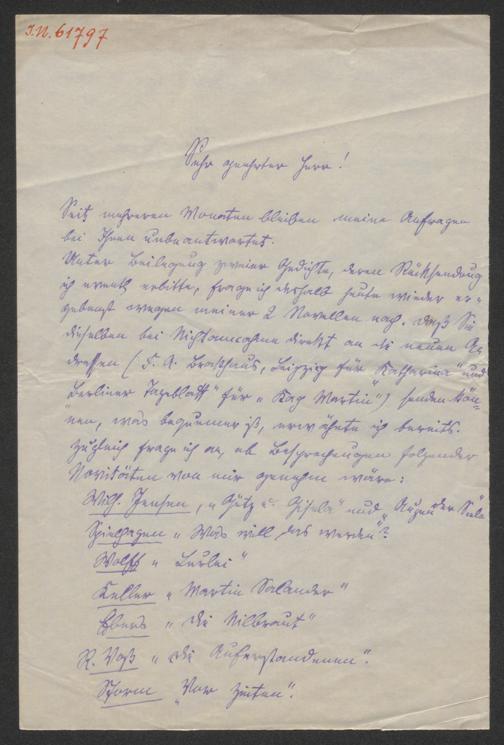 J.N. 61797
Sehr geehrter Herr!
Seit mehreren Monaten bleiben meine Anfragen
bei Ihnen unbeantwortet.
Unter Beilegung zweier Gedichte, deren Rücksendung
ich ev erbitte, frage ich deshalb heute wieder er-
gebenst wegen meiner 2 Novellen nach. Daß Sie
dieselben bei Nichtannahme direkt an die neuen A
dressen (F. A. Brockhaus, Leipzig für „Katharina" und
Berliner Tageblatt" für „Kay Martin") senden kön-
nen, was bequemer ist, erwähnte ich bereits.
Zugleich frage ich an, ob Besprechungen folgender
Novitäten von mir genehm wäre:
Wilh. Jensen, „Götz u. Gisela" und „Augen der Seele
Spielhagen „Was will das werden"?
Wolff „Lurlei"
Keller „Martin Salander"
Ebers „Die Nilbraut"
R. Voß „Die Auferstandenen".
Storm „Vor Zeiten".